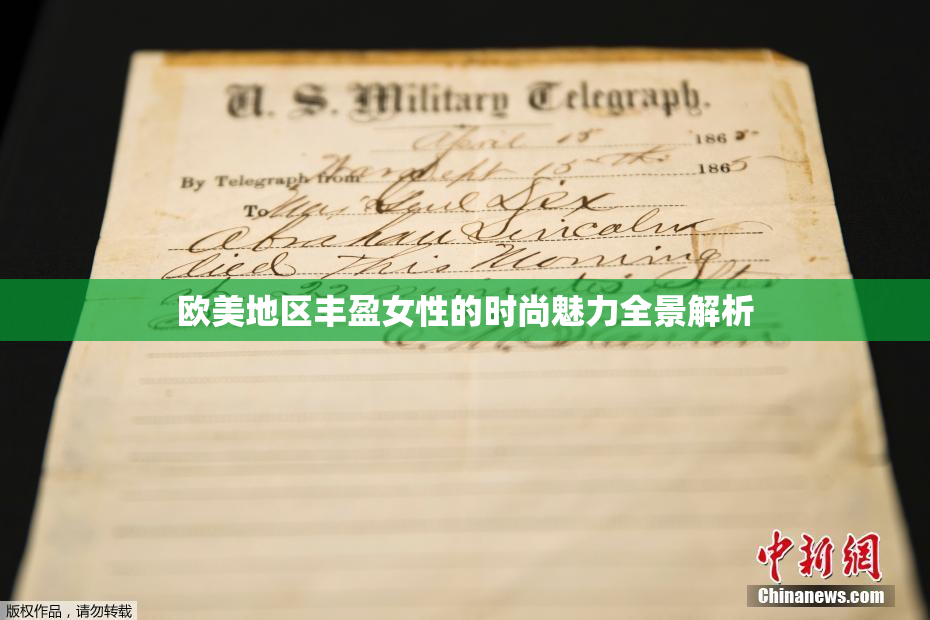 U. S. Military Telegraph.
April 15 1865
By Telegraph from War Dept 15th 1865
To Maj Genl Dix
Abraham Lincoln
died This Morning
22 minutes after
欧美地区丰盈女性的时尚魅力全景解析
E. M. Stanton
中新网
Chinanews.com
版权作品，请勿转载